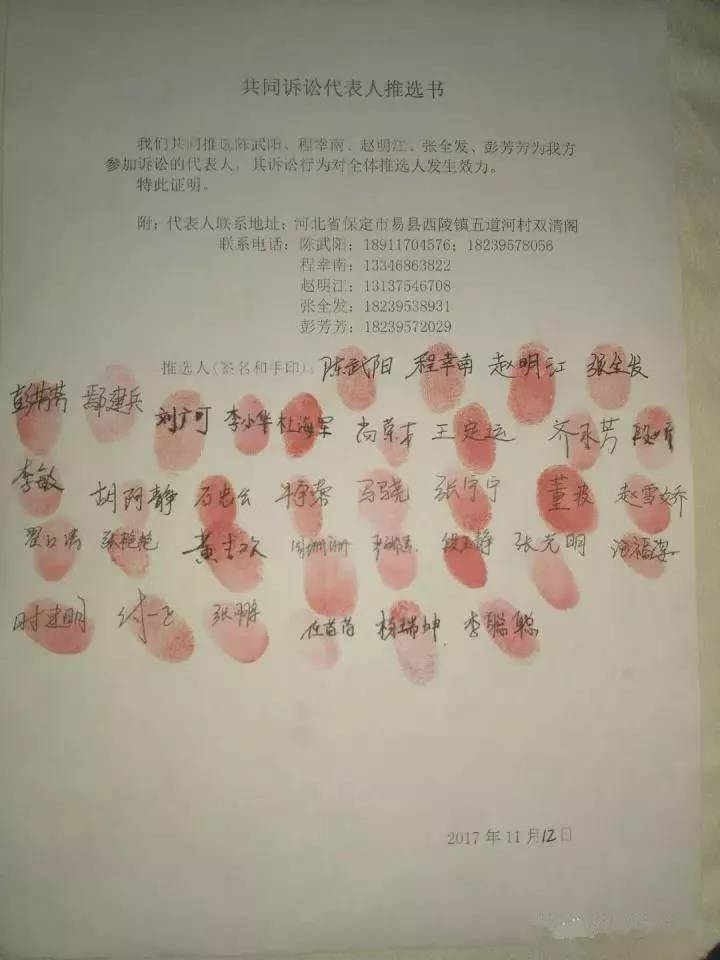 共同诉讼代表人推选书
我们共同推选陈武阳、程幸南、赵明江、张全发、彭芳芳为我方
参加诉讼的代表人，其诉讼行为对全体推选人发生效力。
特此证明。
附：代表人联系地址：河北省保定市易县西陵镇五道河村双清阁
联系电话：陈武阳：18911704576；18239578056
程幸南：13346863822
赵明江：13137546708
张全发：18239538931
彭芳芳：18239572029
推选人(签名和手印)：陈武阳 程幸南 赵明江 张全发
彭芳芳 鄢建兵 刘广可 李小华 杜海军 尚荣才 王定运 齐永芳
李敏 胡阿静 马骁 张宁宁 董波 赵雪娇
张艳艳 段玉静 张光明
时建明 付一飞 张鹏 杨瑞坤 李聪聪
2017年11月12日